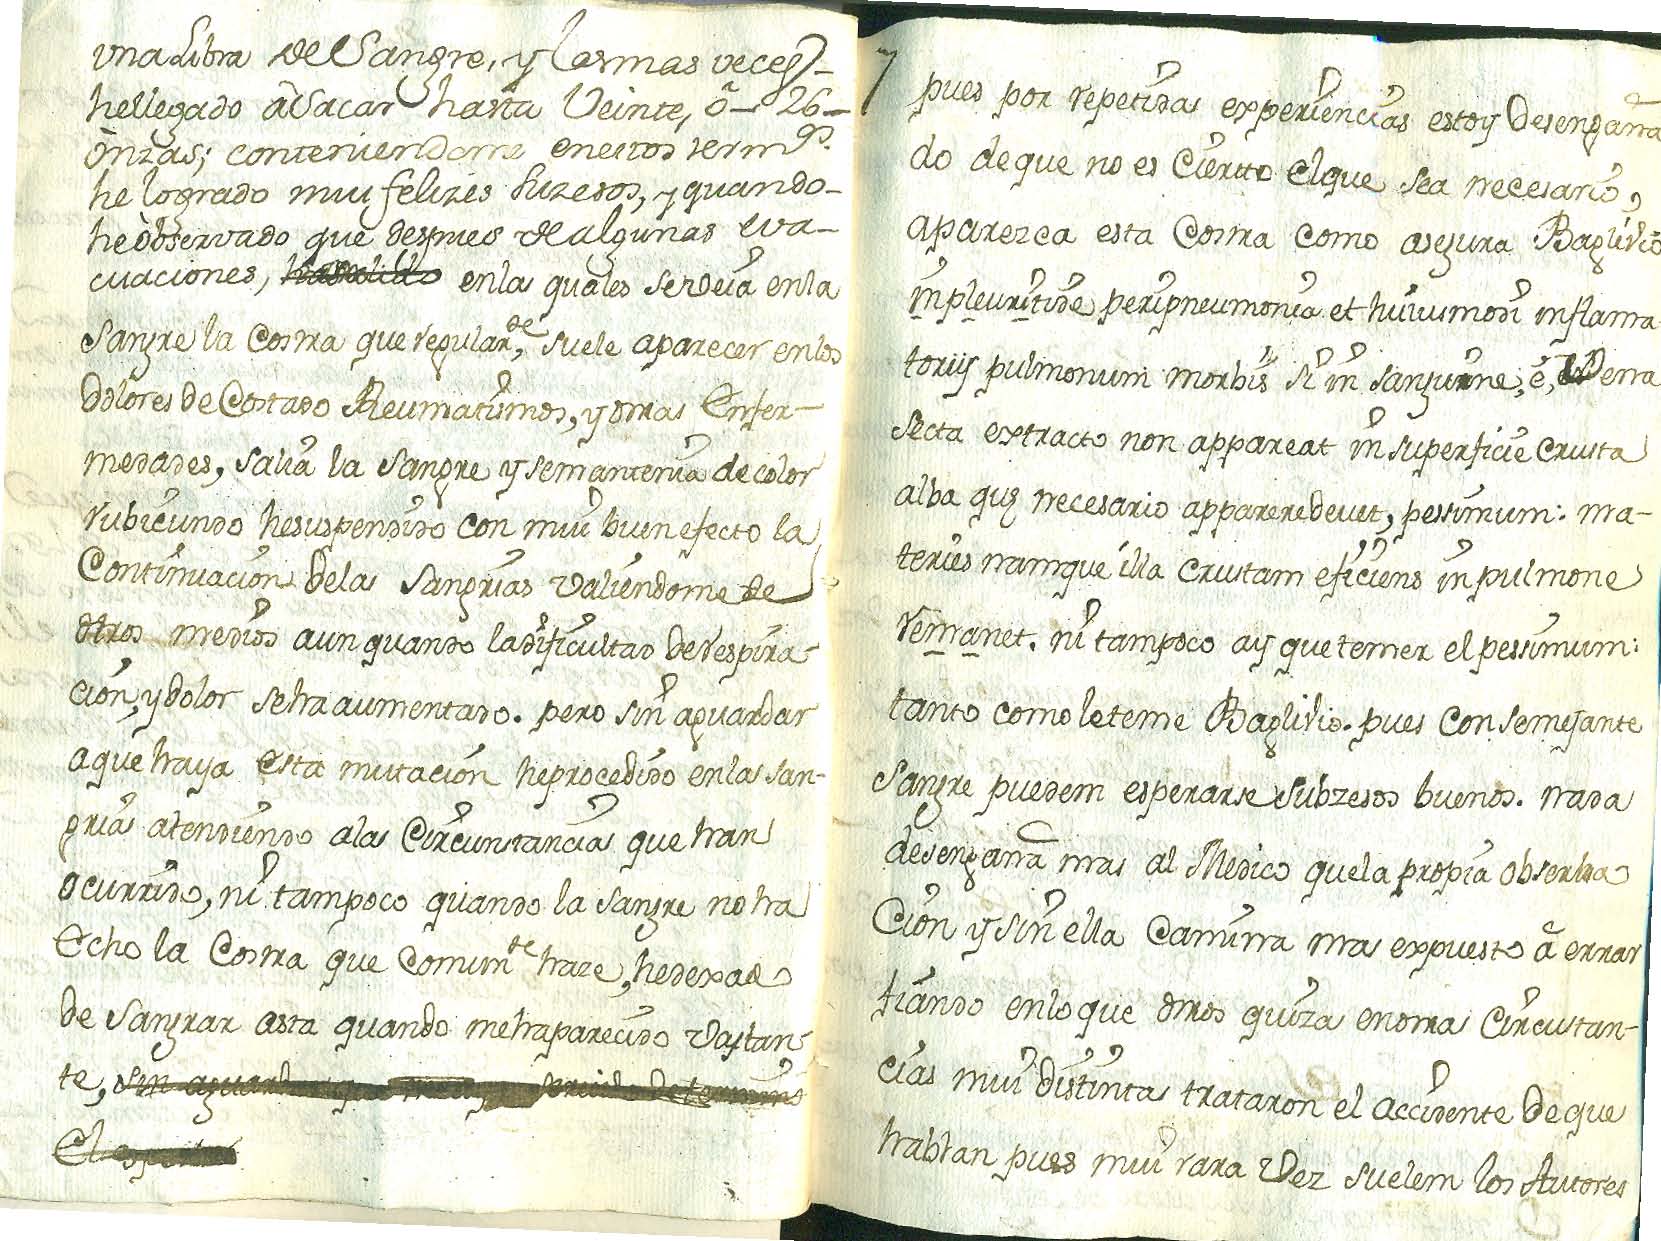 una Libra de Sangre, y las mas veces-
he llegado â Sacar hasta Veinte, ô- 26-
Onzas; conteniendome en estos term.os
he logrado mui felizes suzesos, y quando-
he observado que despues de algunas eva-
cuaciones, en las quales se veia en la
Sangre la Costra que regular.de, suele aparecer en los
Dolores de Costado Reumatismos, y otras Enfer-
medades, salia la sangre y se mantenia de color
rubicundo he suspendido con mui buen efecto la
Continuacion de las sangrias valiendome de
otros medios aun quando la dificultad de respira-
cion, y dolor se ha aumentado. pero sin aguardar
a que haya esta mutacion he procedido en las san-
grias atendiendo a las Circunstancias que han
ocurrido, ni tampoco quando la sangre no ha
Echo la Costra que comun.te haze, he dexado
de sangrar asta quando me ha parecido vastan-
te, sin aguardar
El
pues por repetidas experiencias estoy Desengaña
do de que no es Cierto el que sea necesario,
aparezca esta Costra como asegura Baglivio
in pleuritide peripneumonia et huiusmodi inflama
toriis pulmonum morbis si in sanguine, é, Vena
secta extracto non appareat in superficie crusta
alba quę necesario apparere devet, pessimum: ma-
teries namque illa crustam eficiens in pulmone
remanet. ni tampoco ay que temer el pessimum:
tanto como le teme Baglivio. pues con semejante
Sangre pueden esperarse subzesos buenos. nada
desengaña mas al Medico que la propia obserba
Cion y sin ella Camina mas expuesto â errar
fiando en lo que otros quiza en otras Circustan-
cias mui distintas trataron el accidente de que
hablan pues mui rara Vez suelen los Autores